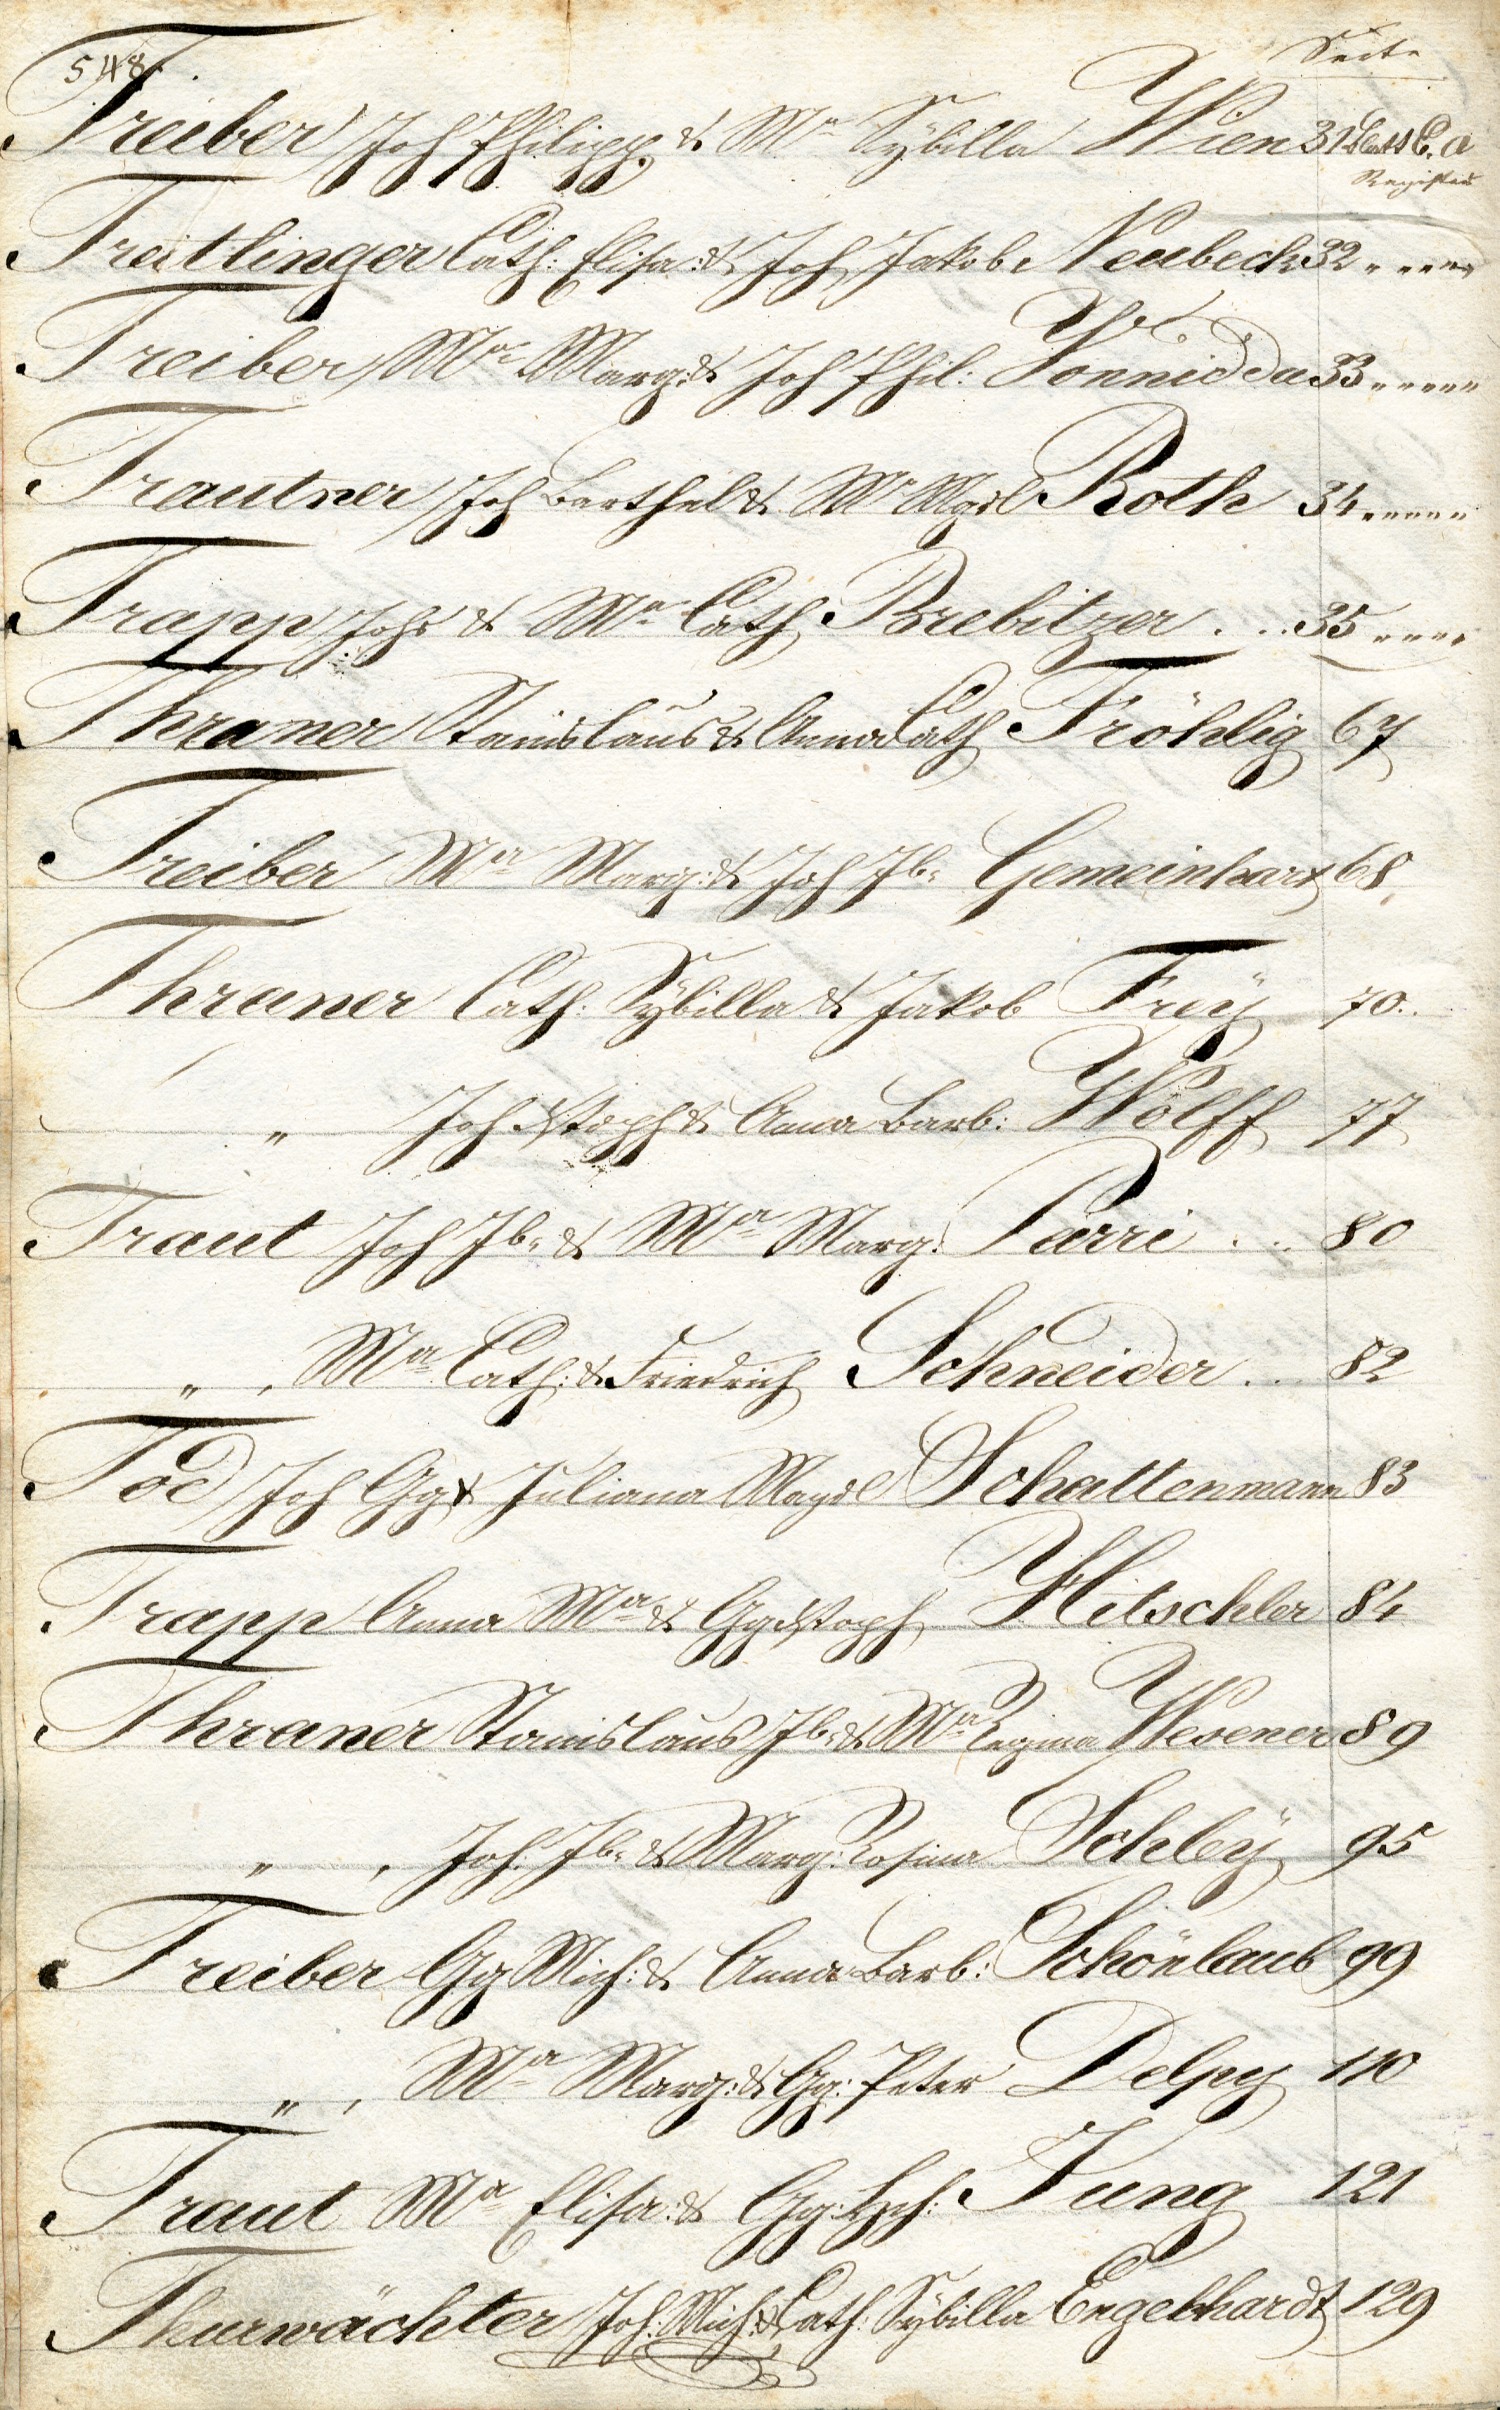 548.
Seite
Treiber Joh Philipp & Ma Sÿbilla Wien 31 Lutt C. a
Register
Treitlinger Cath: Elisa: & Joh Jakob Neubeck 32 " " " " "
Treiber Ma Marg: & Joh Phil: Vonnidda 33 " " " " "
Trautner Joh Barthel & Ma Magd Roth 34 " " " " "
Trapp Johs & Ma Cath Brebitzer . . . 35 " " " "
Thraner Stanislaus & Anna Cath Fröhlig 67
Treiber Ma Marg: & Joh Jb: Gemeinhart 68
Thraner Cath: Sÿbilla & Jakob Freÿ 70..
" Joh Xstoph & Anna Barb: Wolff 77
Traut Joh Jb: & Ma Marg: Parri . . . 80
" , Ma Cath: & Friedrich Schneider . . . 82
Tod Joh Gg & Juliana Magd Schattenmann 83
Trapp Anna Ma & Gg Xstoph Hitschler 84
Thraner Stanislaus Jb: & Ma Regina Wesener 89
" , Joh: Jb: & Marg: Rosina Schleÿ 95
Treiber Gg Mich: & Anna Barb: Schönlaub 99
" , Ma Marg: & Gg: Peter Delpy 110
Traut Ma Elisa: & Gg: Jung 121
Thurwächter Joh: Mich: & Cath: Sÿbilla Engelhardt 129